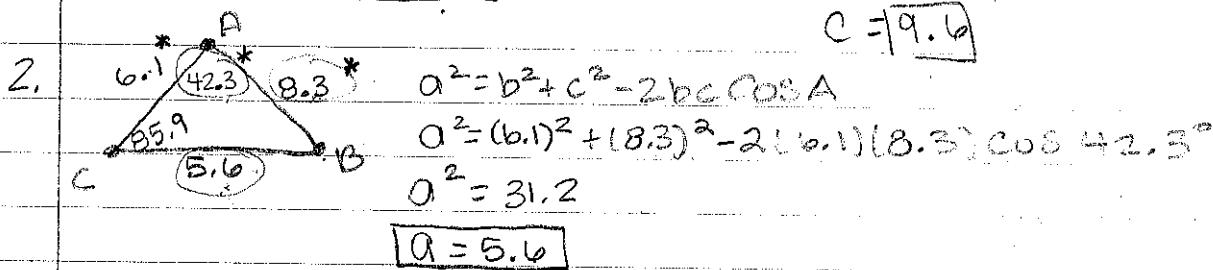 C = 9.6
2.
A
* 6.1 42.3 * 8.3 *
85.9
C 5.6 B
a² = b² + c² - 2bc COS A
a² = (6.1)² + (8.3)² - 2(6.1)(8.3) COS 42.3°
a² = 31.2
a = 5.6